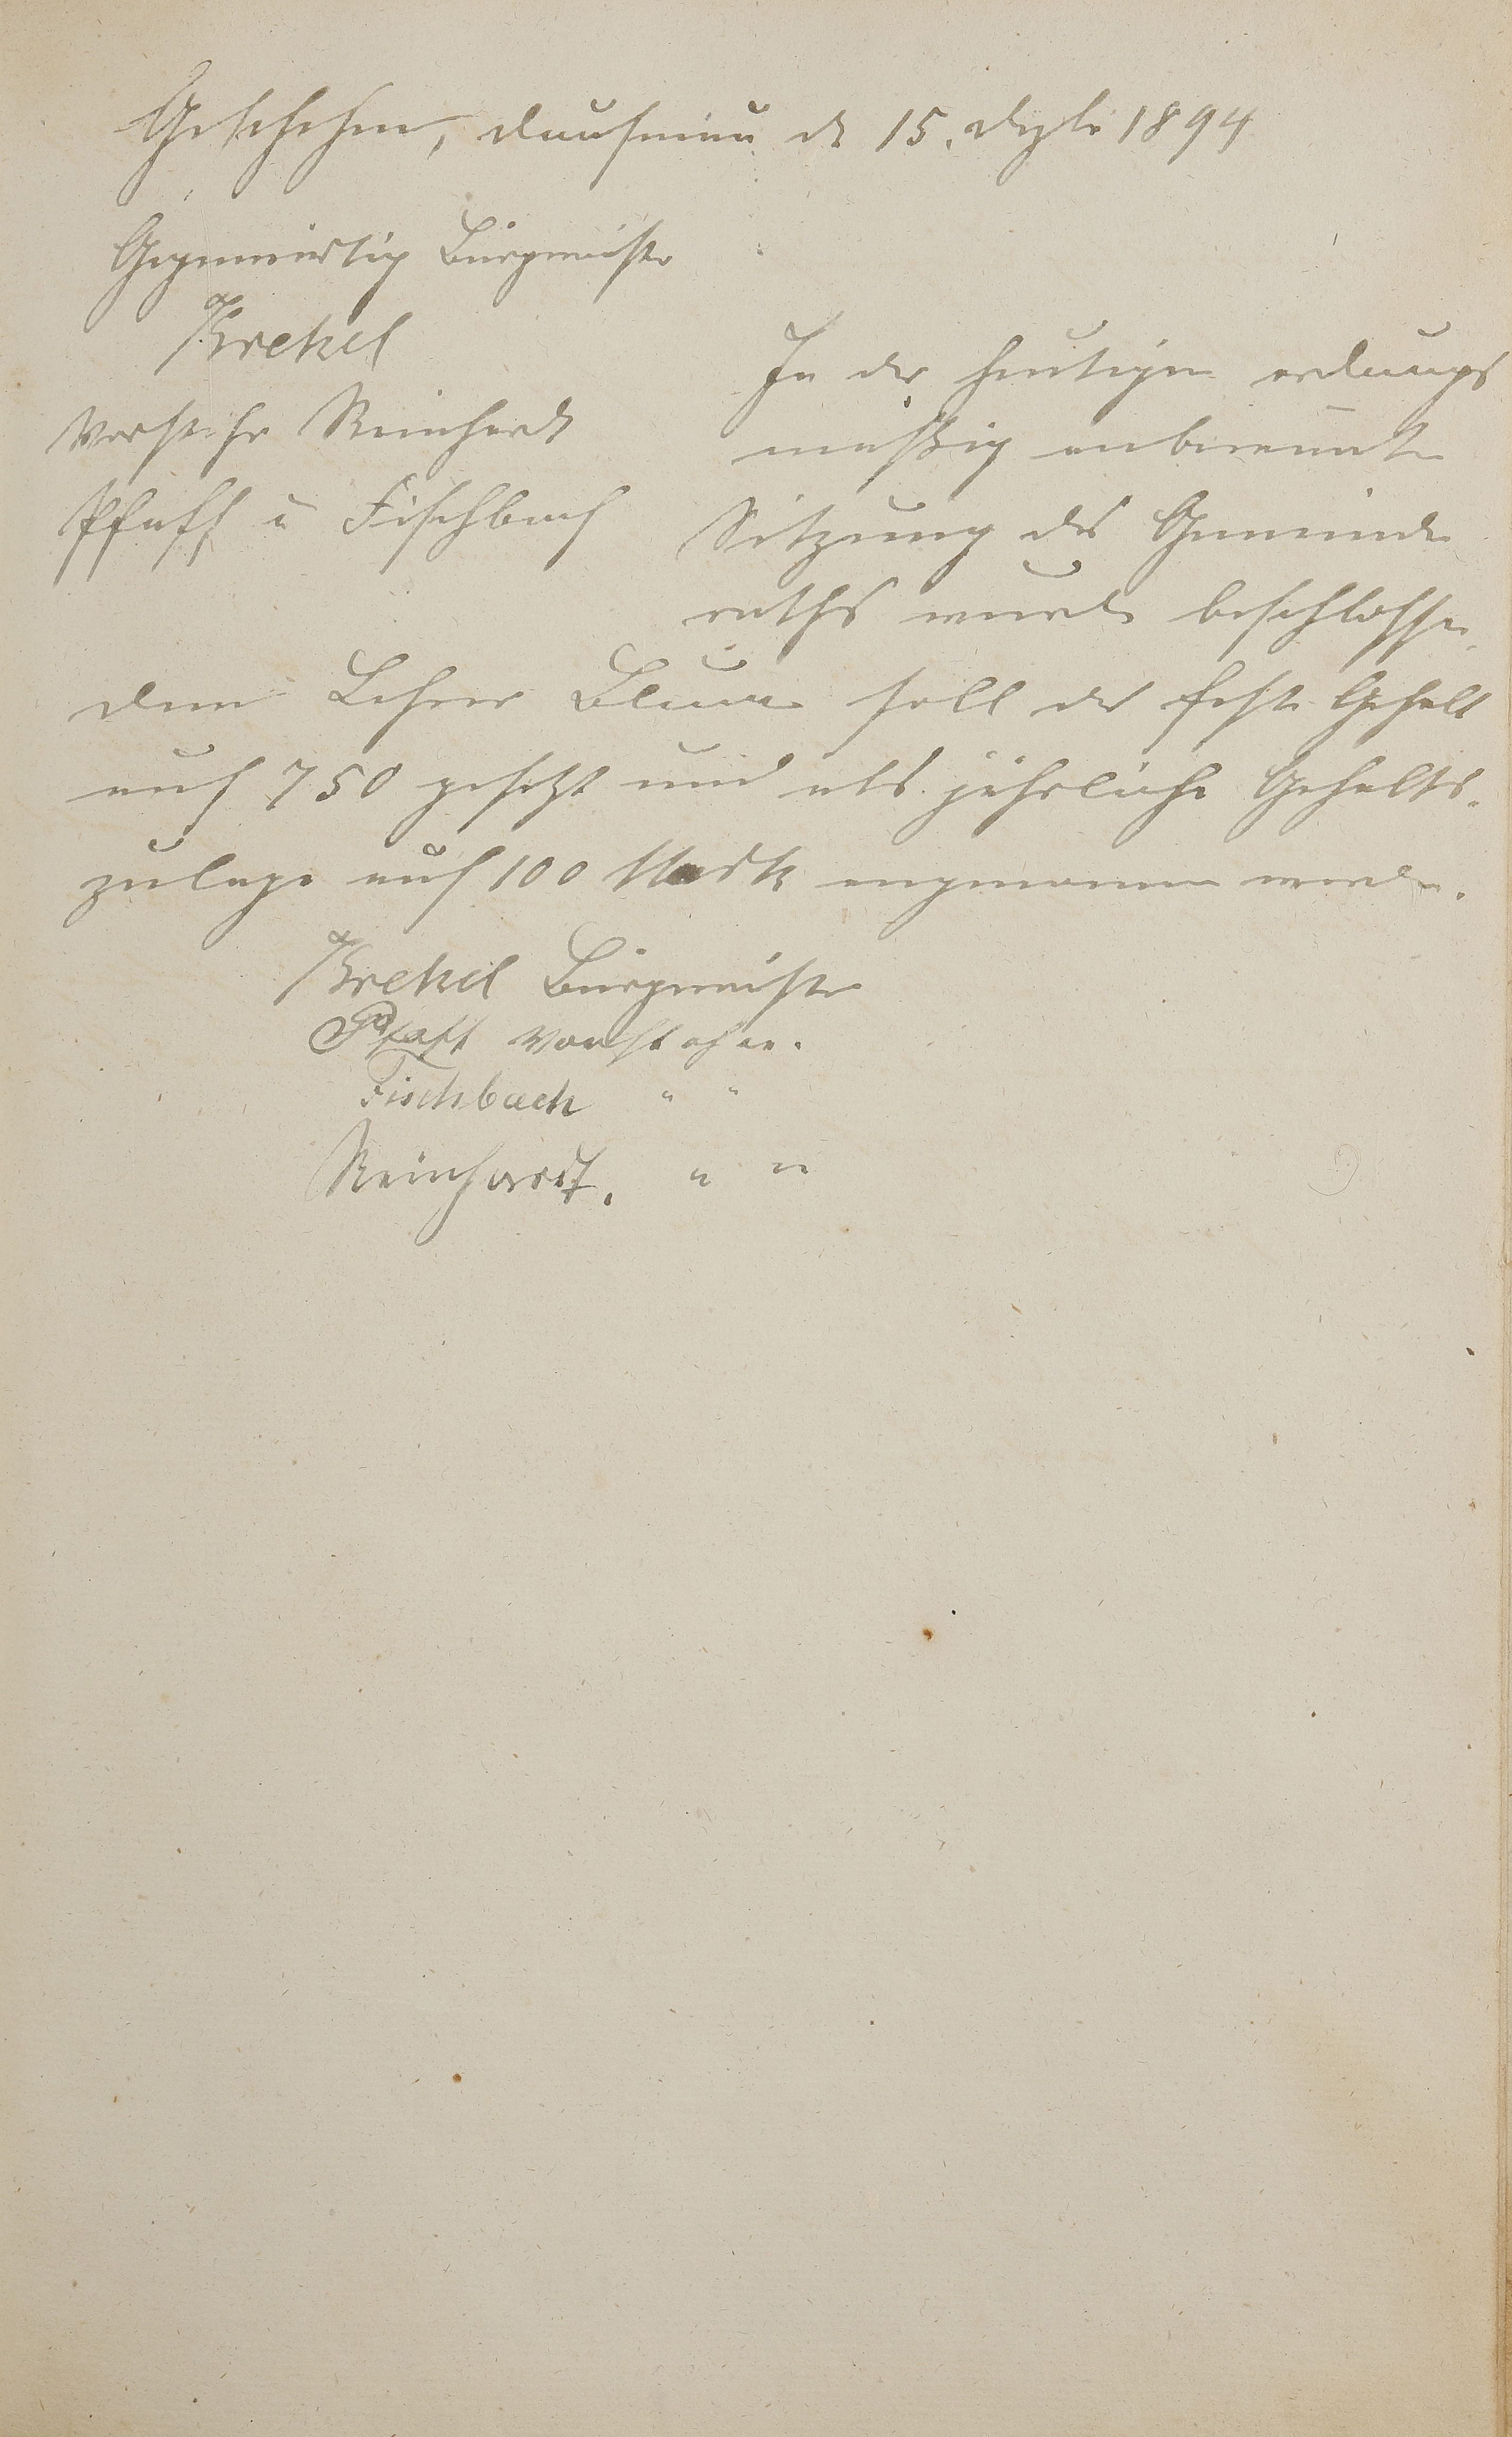 Geschehen, Dausenau d 15. Dezbr 1894
Gegenwärtig Bürgmeister
Krekel
Vorsteher Reinhardt
Pfaff u Fischbach
In der heutigen ordnungs
mäßig anberaumte
Sitzung des Gemeinde
raths wurde beschlossen
dem Lehrer Blum soll das feste Gehalt
auf 750 gesetzt und als jährliche Gehalts-
zulage auf 100 Mark angenomen werden.
Krekel Bürgmeister
Pfaff Vorsteher.
Fischbach " "
Reinhardt. " "